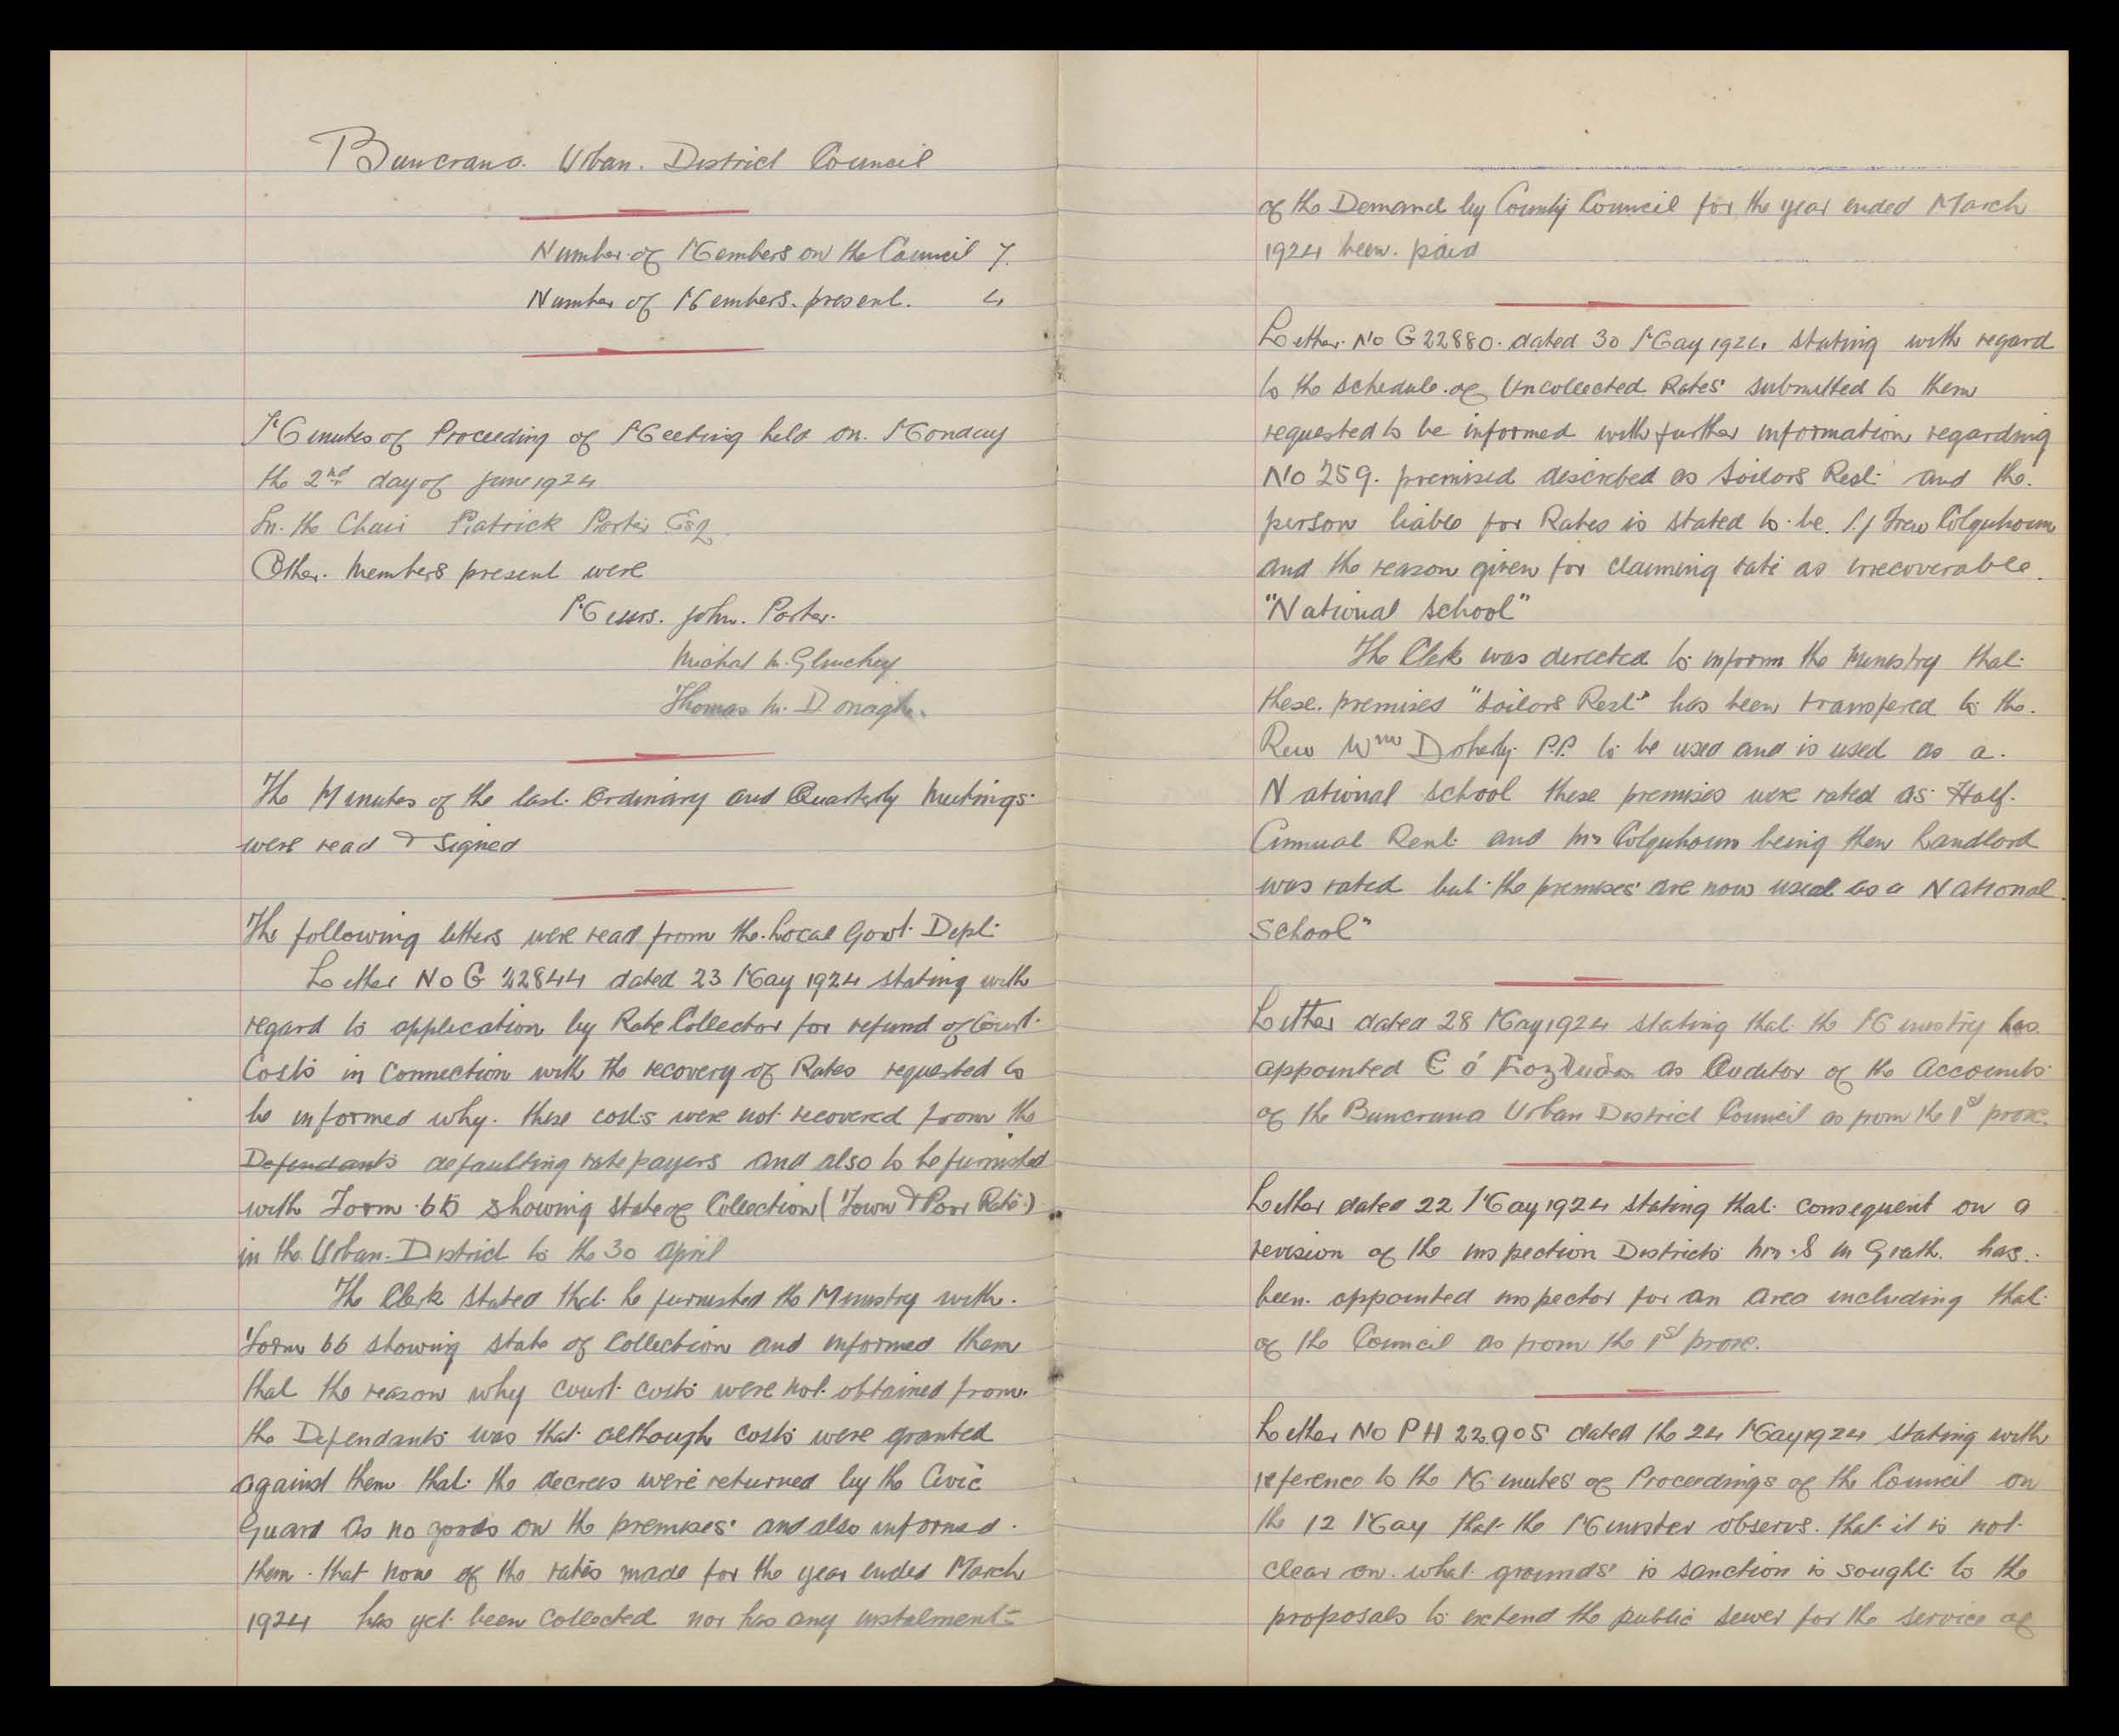 Buncrana Urban District Council
Number of Members on the Council 7.
Number of Members present. 4
Minutes of Proceeding of Meeting held on Monday
the 2nd day of June 1924
In the Chair Patrick Porter Esq.
Other Members present were
Messrs. John. Porter.
Michal
Thomas Mc Donagh.
The Minutes of the last Ordinary and Quarterly Meetings
were read & signed
The following letters were read from the Local Govt. Dept.
Letter No G 22844 dated 23 May 1924 stating with
regard to application by Rate Collector for refund of Court
Costs in connection with the recovery of Rates requested to
be informed why these costs were not recovered from the
Defendants defaulting rate payers and also to be furnished
with Form showing state of Collection (Town & Poor Rate)
in the Urban District to the 30 April
The Clerk stated that he furnished the Ministry with
Form 66 showing state of Collection and informed them
that the reason why court costs were not obtained from
the Defendants was that although costs were granted
against them that the decrees were returned by the Civic
Guard as no goods on the premises and also informed
them that none of the rates made for the year ended March
1924 has yet been collected nor has any instalment
of the Demand by County Council for the year ended March
1924 been paid
Letter No G 22880 dated 30 May 1924 stating with regard
to the schedule of Uncollected Rates submitted to them
requested to be informed with further information regarding
No 259. premised described as Sailors Rest and the
person liable for Rates is stated to be Frew Colquhoun
and the reason given for claiming rate as irrecoverable.
"National School"
The Clerk was directed to inform the Ministry that
these premises "Sailors Rest" has been transfered to the
Rev Wm Doherty P.P. to be used and is used as a
National School these premises were rated as Half
Annual Rent and Mr Colquhoun being then Landlord
was rated but the premises are now used as a National
School"
Letter dated 28 May 1924 stating that the Ministry has
appointed E ó as Auditor of the Accounts
of the Buncrana Urban District Council as from the 1st prox.
Letter dated 22 May 1924 stating that consequent on a
revision of the inspection Districts Mr. S Mc Grath has
been appointed inspector for an area including that
of the Council as from the 1st prox.
Letter No PH 22905 dated the 24 May 1924 stating with
reference to the Minutes of Proceedings of the Council on
the 12 May that the Minister observs. that it is not
clear on what grounds is sanction is sought to the
proposals to extend the public sewer for the service of